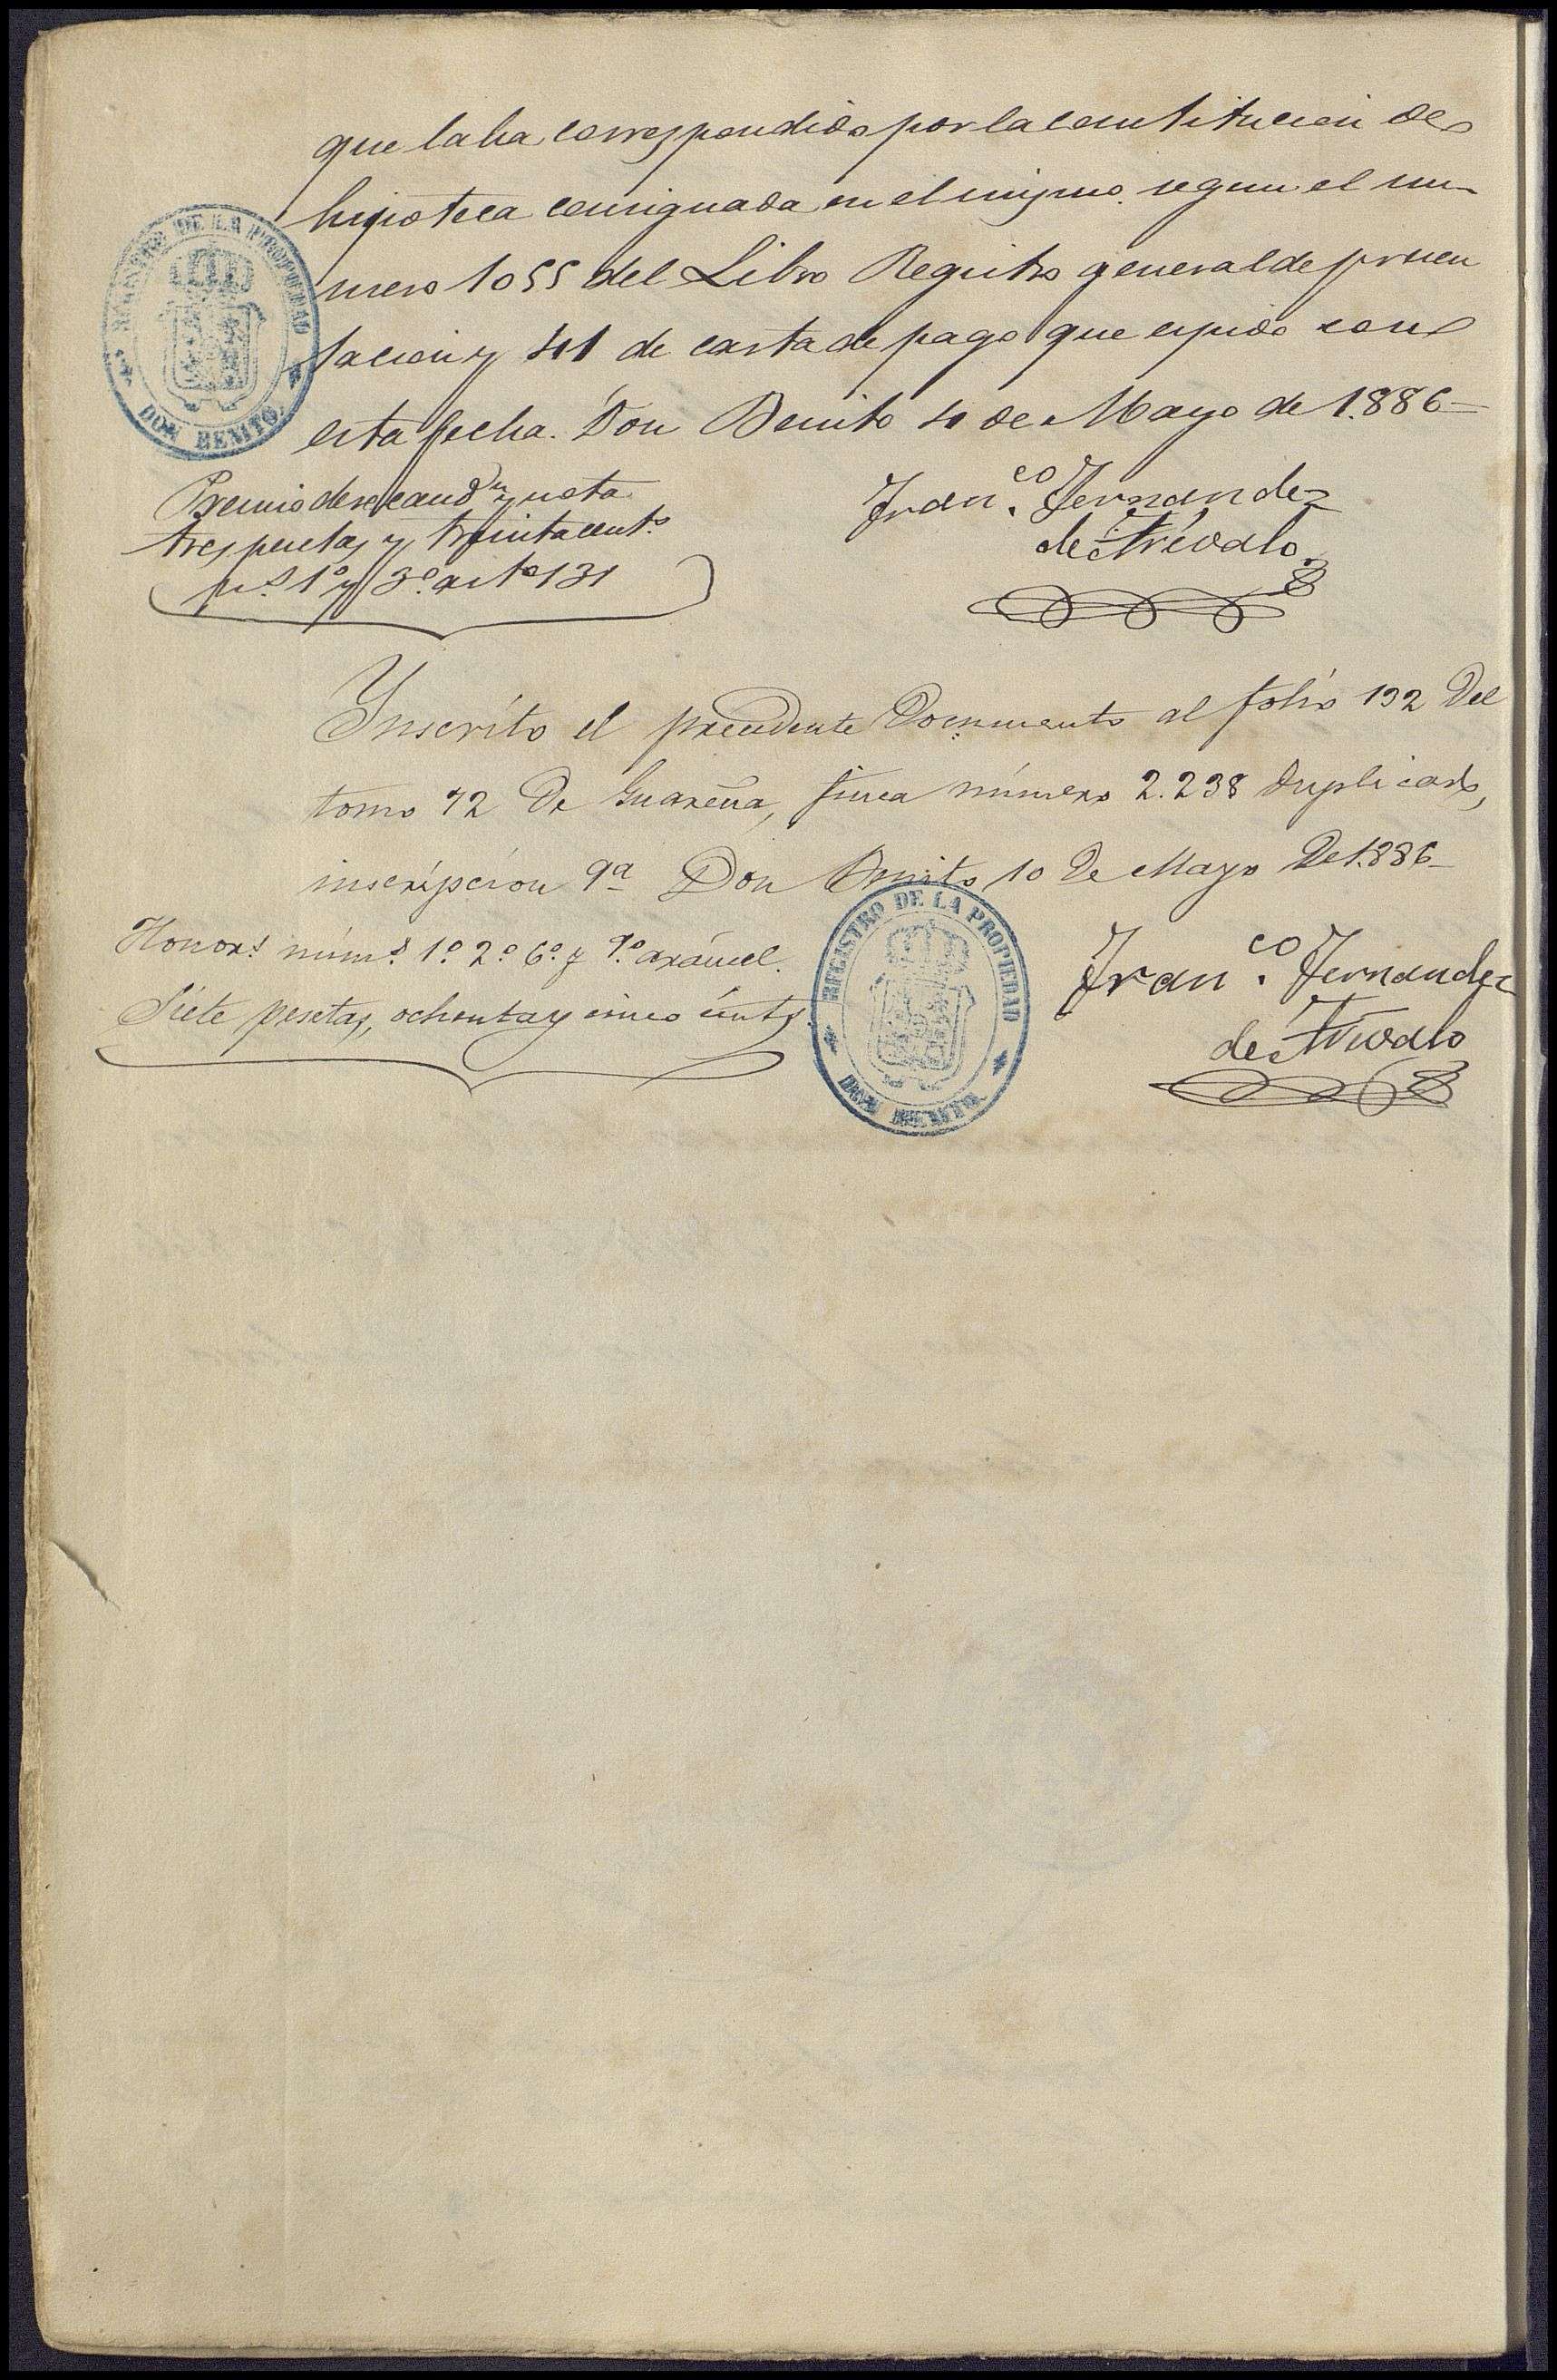 que la ha correspondido por la constitucion de
hipoteca consignada en el mismo. segun el nu-
mero 1055 del Libro Registro general de presen
tacion y 41 de carta de pago que espido con
esta fecha. Don Benito 4 de Mayo de 1.886=
REGISTRO DE LA PROPIEDAD
DON BENITO.
Premio de recaudn y nota
tres pesetas y treinta cents
ns. 1º y 3º. arto 131
Franco. Fernandez
de Arévalo
Ynscrito el precedente Documento al folio 192 del
tomo 72 de Guareña, finca número 2.238 duplicado,
inscripcion 9ª Don Benito 10 de Mayo de 1.886-
Honors. núms. 1º. 2º. 6º. y 9º. arancel.
Siete pesetas, ochenta y cinco cents
REGISTRO DE LA PROPIEDAD
DON BENITO.
Franco. Fernandez
de Arévalo